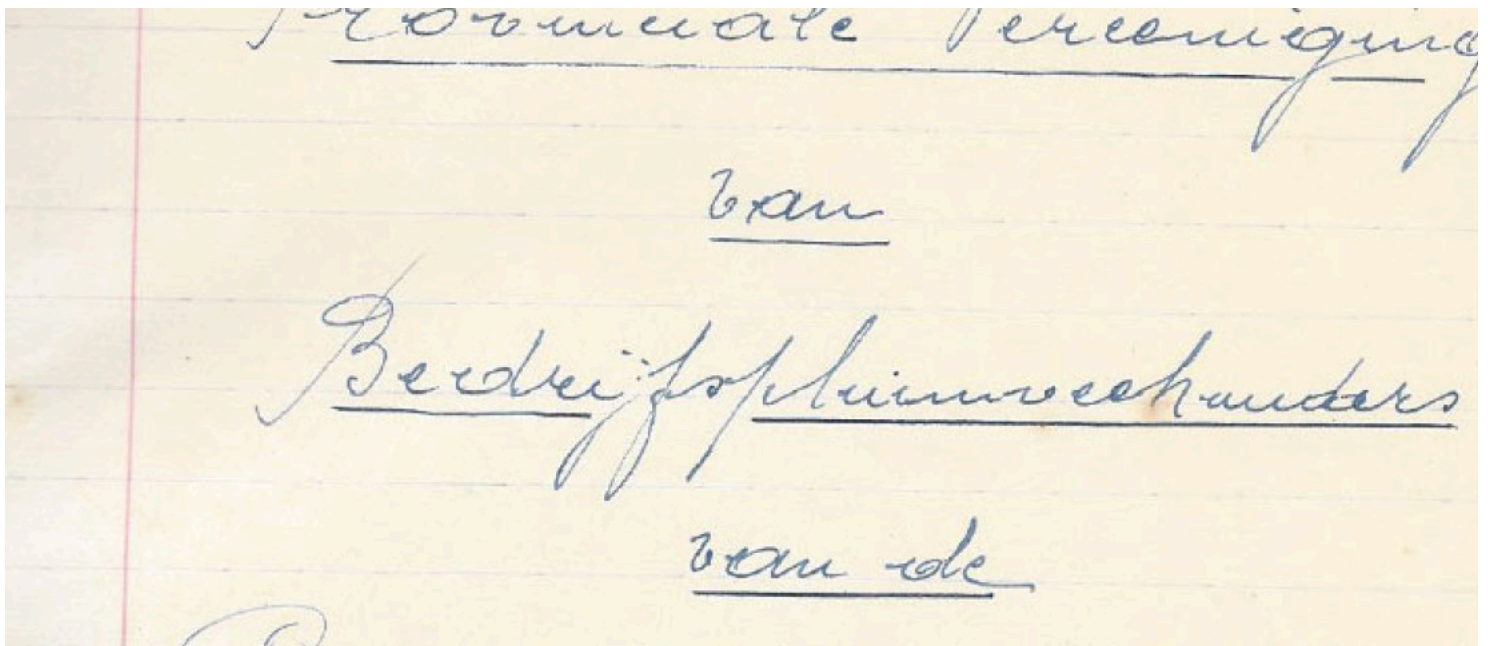 Provinciale Vereeniging
van
Bedrijfspluimveehouders
van de